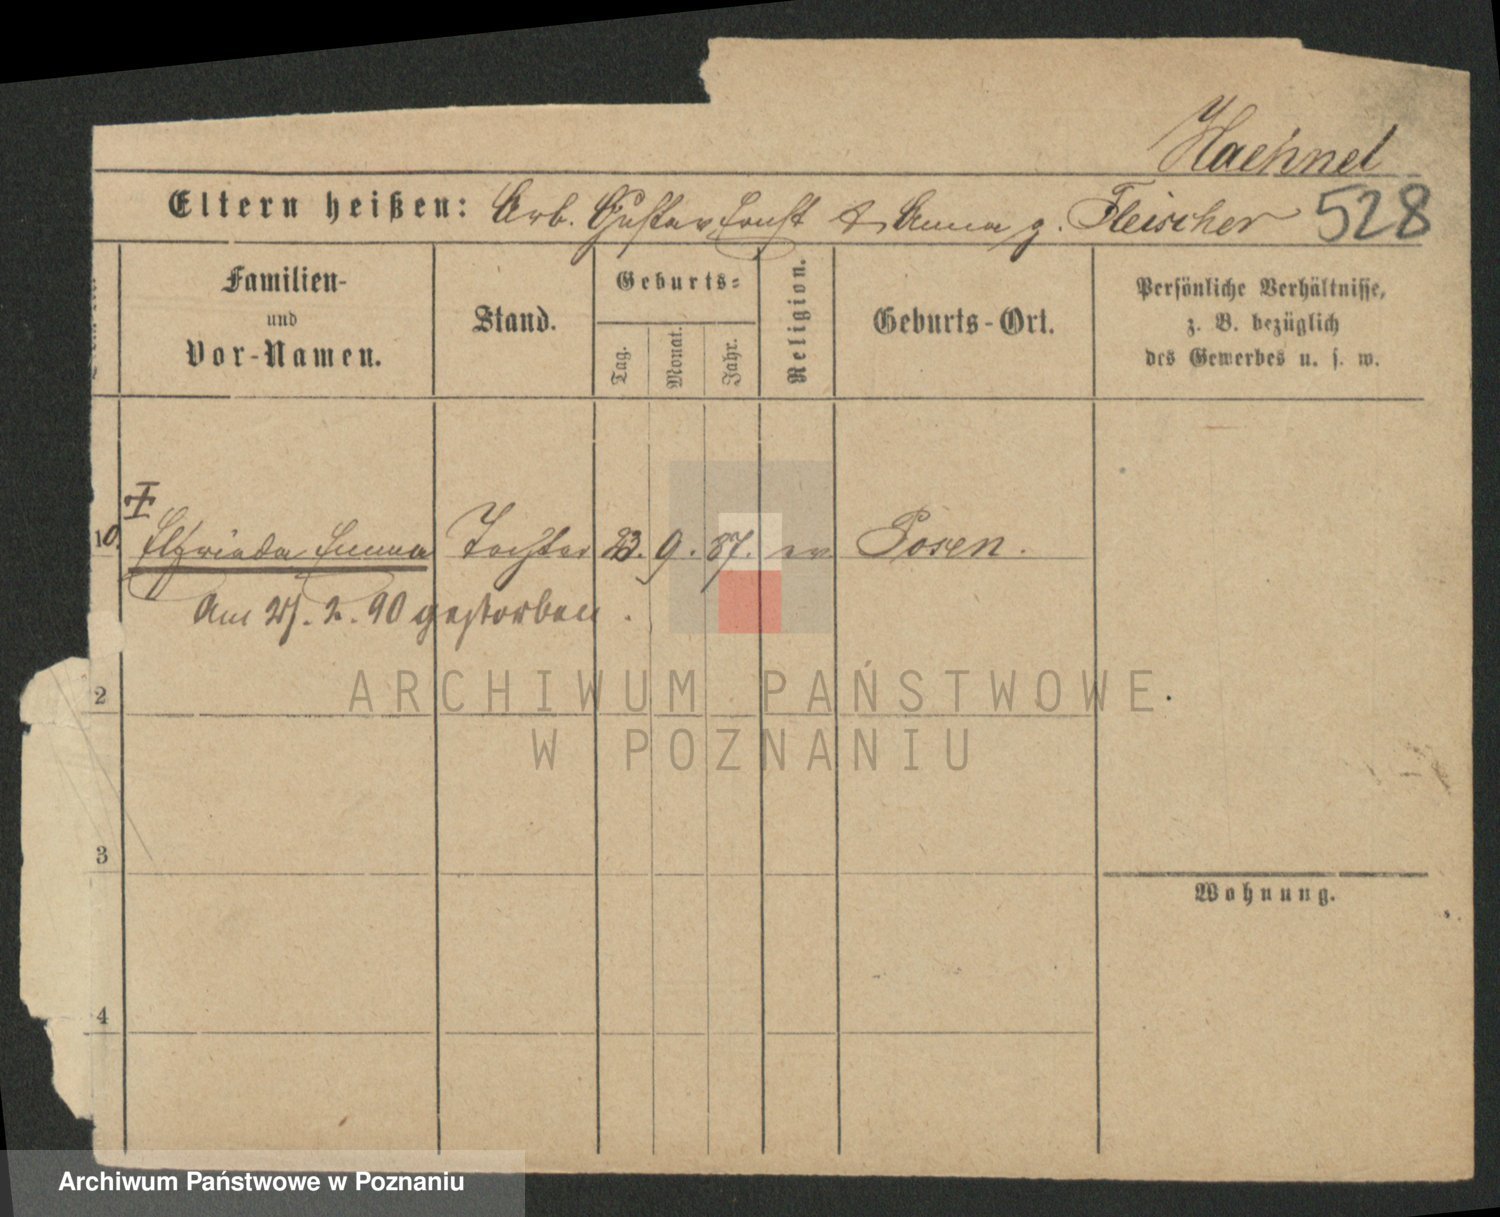 Haehnel
Eltern heißen: Arb. Gustav Ernst & Anna g. Fleischer 528
Familien-
und
Vor-Namen.
Stand.
Geburts-
Tag.
Monat.
Jahr.
Religion.
Geburts-Ort.
Persönliche Verhältnisse,
z. B. bezüglich
des Gewerbes u. s. w.
10. Elfrieda Emma Tochter 23. 9. 87. ev Posen.
Am 25. 2. 90 gestorben.
2
3
4
Wohnung.
ARCHIWUM PAŃSTWOWE
W POZNANIU
Archiwum Państwowe w Poznaniu